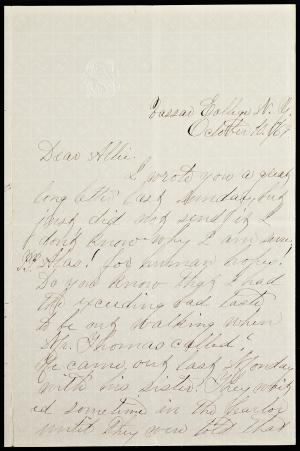 Vassar College N. Y.
October 16, /69
Dear Allie.
I wrote you a great
long letter last Sunday but
just did not send it. I
don't know why I am sure.
P.S. Alas! for human hopes!
Do you know that I had
the exceeding bad taste
to be out walking when
Mr. Thomas called!
He came out last Monday
with his sister. They wait
ed sometime in the parlor
until they were told that